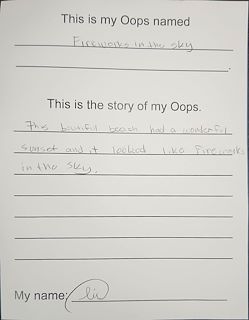 This is my Oops named
Fireworks in the sky
This is the story of my Oops.
This boutiful beach had a wonderful
sunset and it looked like fireworks
in the sky.
My name: liv